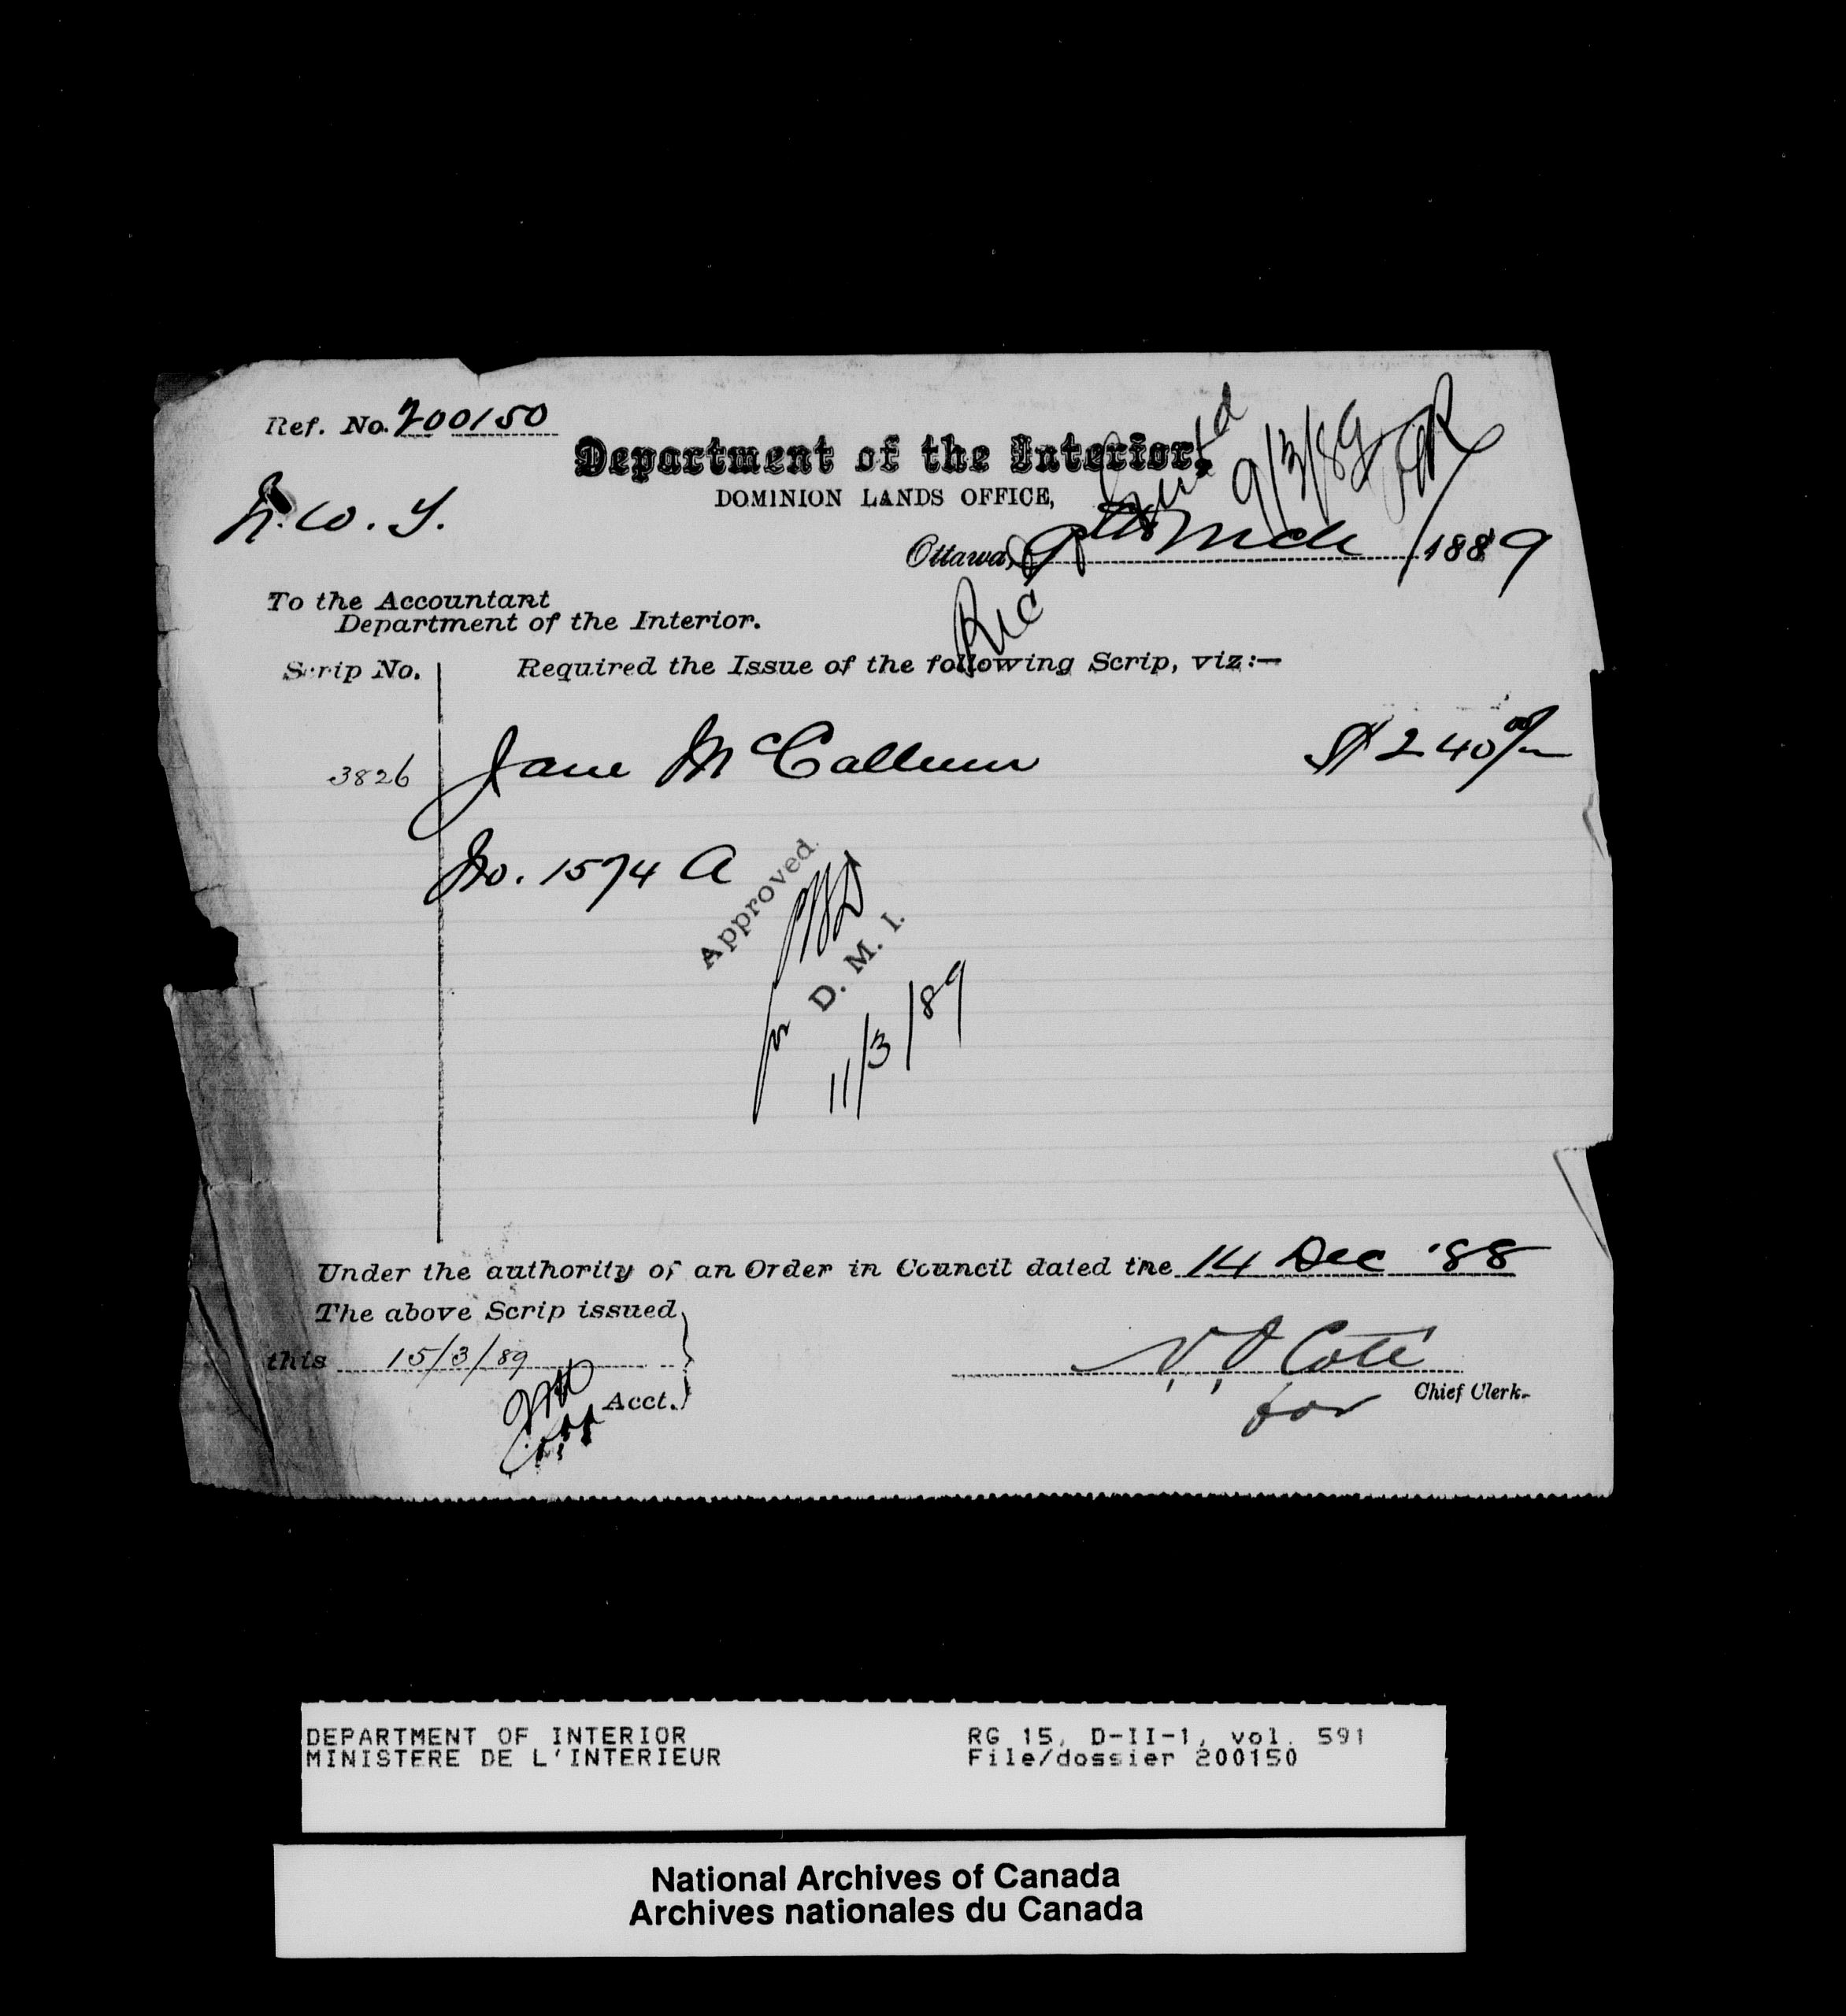 Ref. No. 200150
Department of the Interior,
DOMINION LANDS OFFICE,
N.W.T.
Ottawa, 9th Mch 1889
9/3/89
To the Accountant
Department of the Interior.
Scrip No.
Required the Issue of the following Scrip, viz:—
3826 Jane McCallum $240 00/
No. 1574 A
Approved.
for D. M. I.
11/3/89
Under the authority of an Order in Council dated the 14 Dec '88
The above Scrip issued
this 15/3/89
Acct.
Coté
for Chief Clerk.
DEPARTMENT OF INTERIOR
MINISTERE DE L'INTERIEUR
RG 15, D-II-1, vol. 591
File/dossier 200150
National Archives of Canada
Archives nationales du Canada